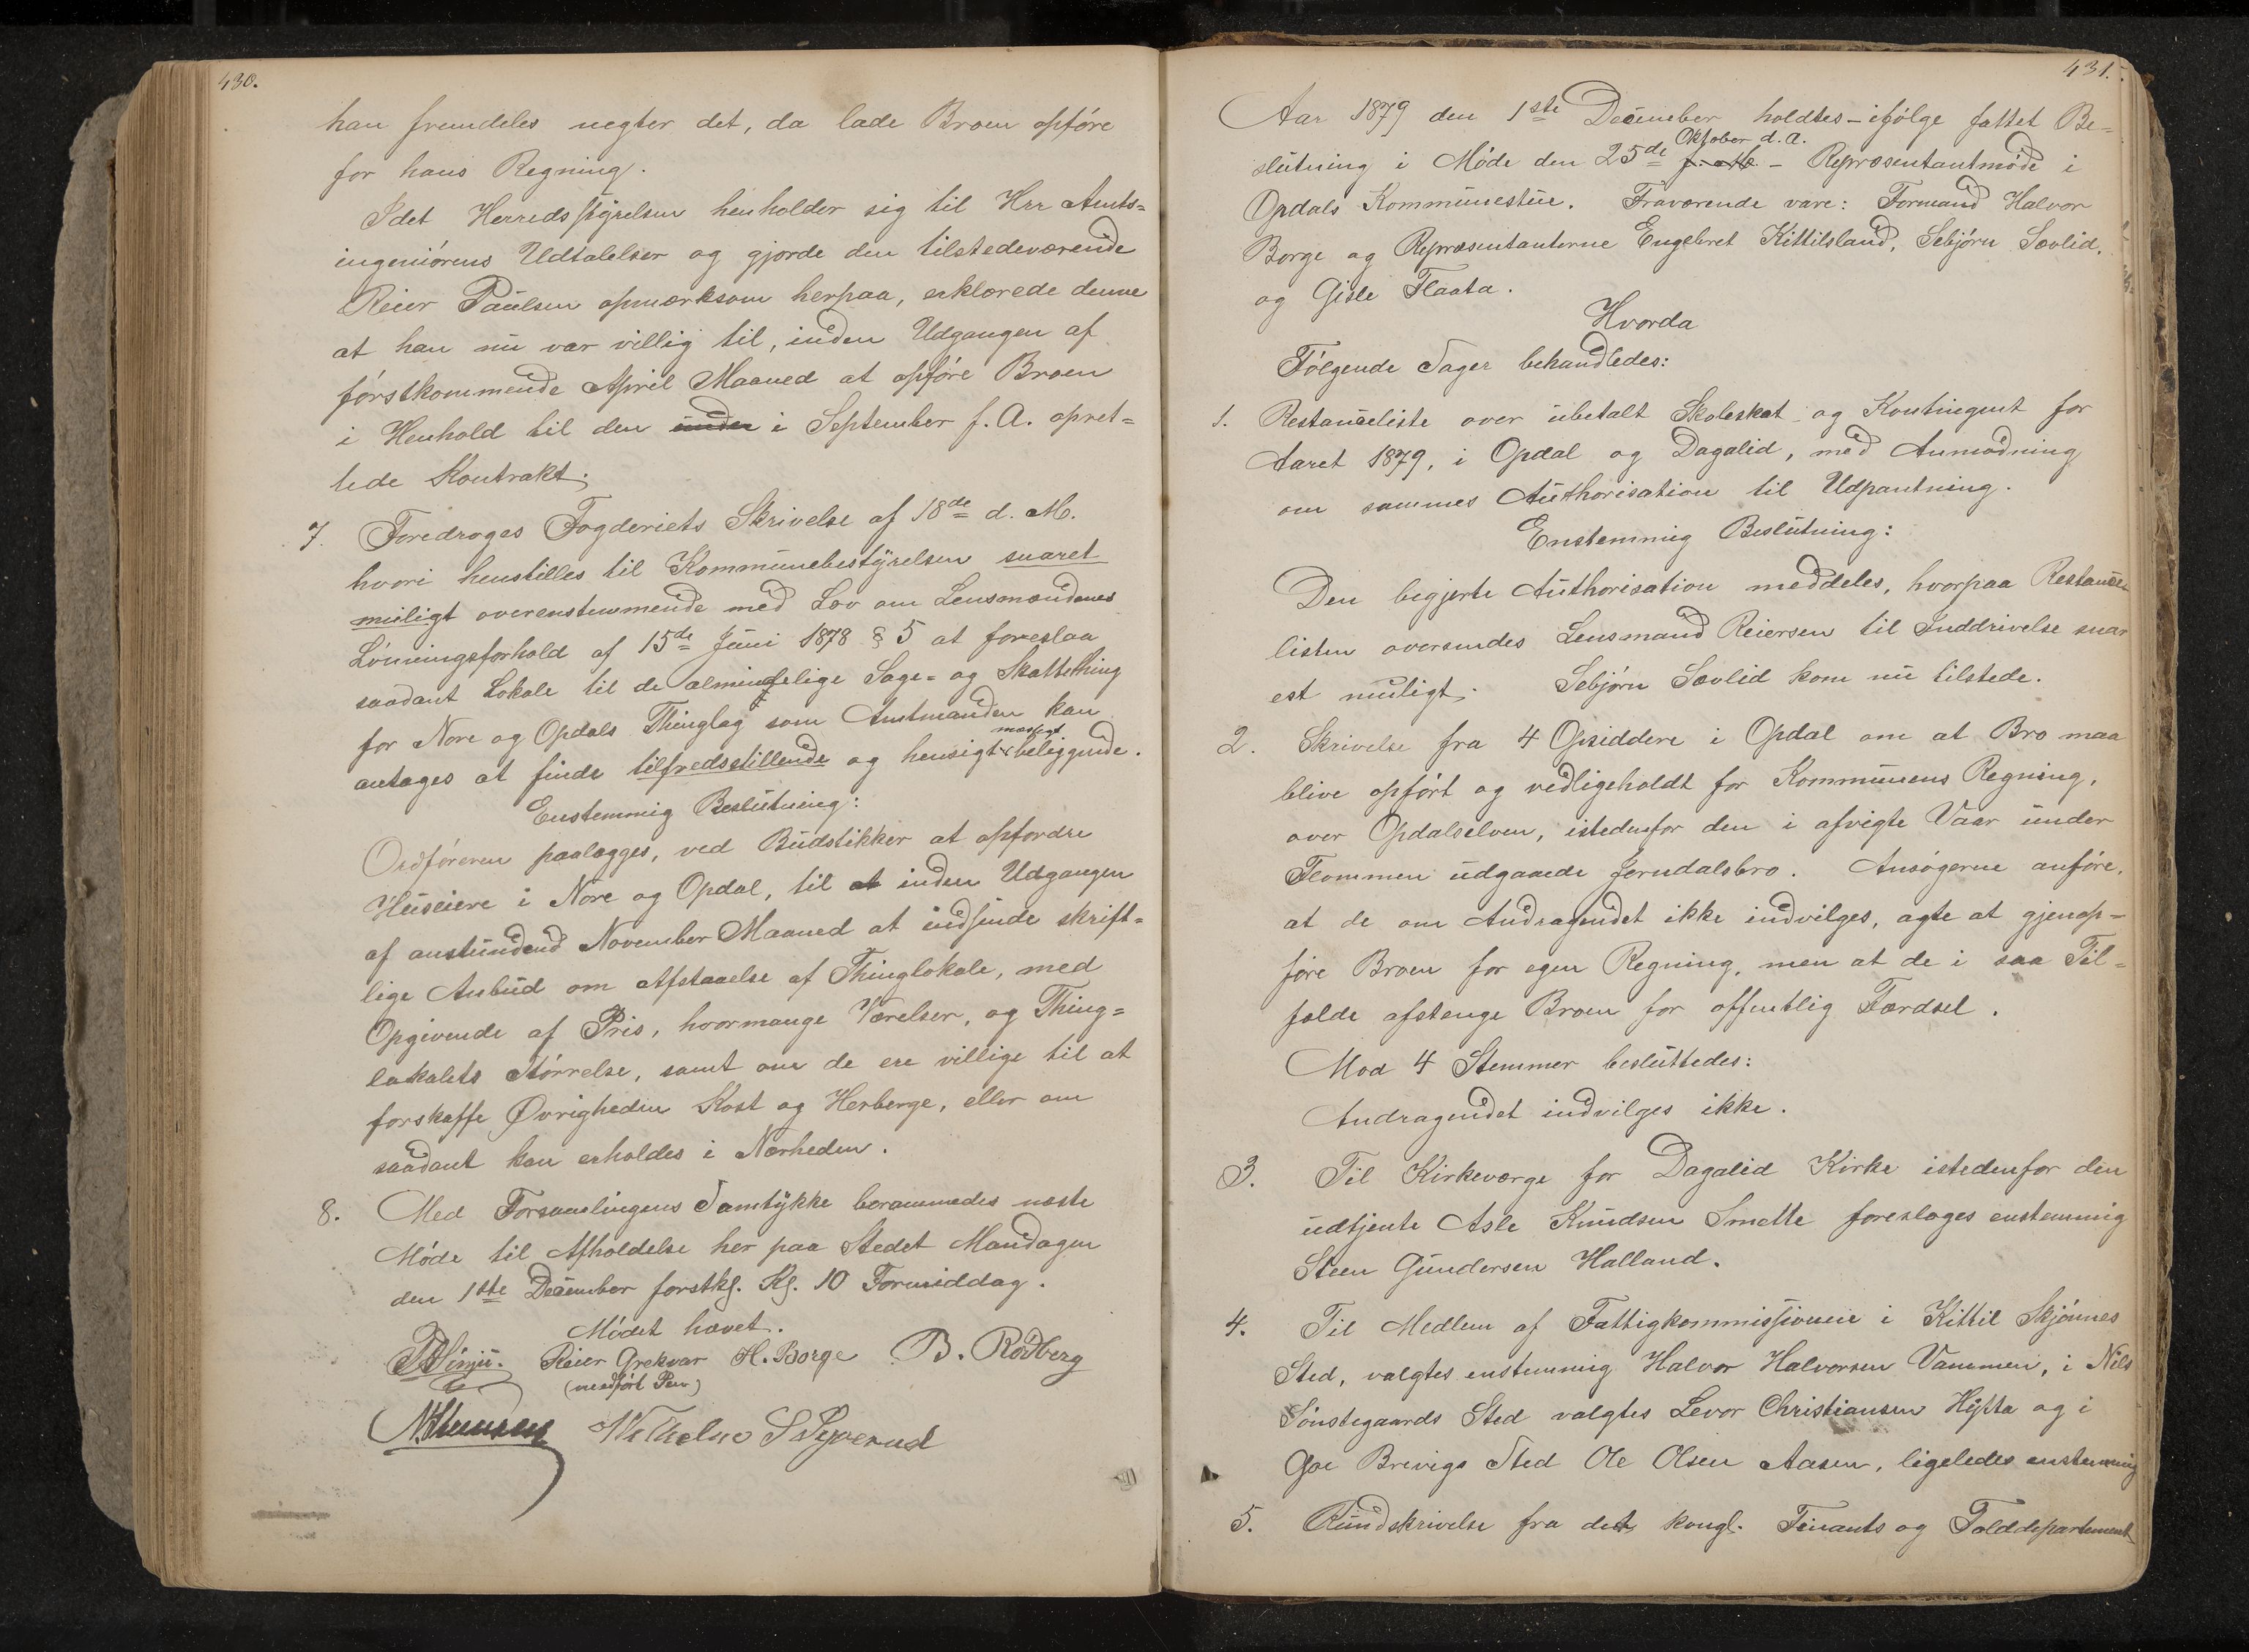 430.
han fremdeles negter det, da lade Broen opføre
for hans Regning.
Idet Herredsstyrelsen henholder sig til Hrr Amts=
ingeniørens Udtalelser og gjorde den tilstedeværende
Reier Paulsen opmærksom herpaa, erklærede denne
at han nu var villig til, inden Udgangen af
førstkommende April Maaned at opføre Broen
i Henhold til den under i September f. A. opret=
tede Kontrakt.
7. Foredroges Fogderiets Skrivelse af 18de d. M.
hvori henstilles til Kommunebestyrelsen snaret
muligt overenstemmende med Lov om Lensmændenes
Lønningsforhold af 15de Juni 1878 § 5 at foreslaa
saadant Lokale til de almindelige Sage= og Skattething
for Nore og Opdals Thinglag som Amtmanden kan
antages at finde tilfredsstillende og hensigtsmæssigt beliggende.
Enstemmig Beslutning:
Ordføreren paalægges, ved Budstikker at opfordre
Huseiere i Nore og Opdal, til at inden Udgangen
af anstundend November Maaned at indsende skrift=
lige Anbud om Afstaaelse af Thinglokale, med
Opgivende af Pris, hvormange Værelser, og Thing=
lokalets Størrelse, samt om de ere villige til at
forskaffe Øvrigheden Kost og Herberge, eller om
saadant kan erholdes i Nærheden.
8. Med Forsamlingens Samtykke berammedes næste
Møde til Afholdelse her paa Stedet Mandagen
den 1ste December førstkg. Kl. 10 Formiddag.
Mødet hævet.
Reier Grekvar H. Borge B. Rødberg
(medført Pen)
431.
Aar 1879 den 1ste December holdtes - ifølge fattet Be=
slutning i Møde den 25de f. M. Oktober d. A. - Repræsentantmøde i
Opdals Kommunestue. Fraværende vare: Formand Halvor
Borge og Repræsentanterne Engebret Kittilsland, Sebjørn Søvlid,
og Gisle Flaata.
Hvorda
Følgende Sager behandledes:
1. Restanceliste over ubetalt Skoleskat og Kontingent for
Aaret 1879, i Opdal og Dagalid, med Anmodning
om sammes Authorisation til Udpantning.
Enstemmig Beslutning:
Den begjerte Authorisation meddeles, hvorpaa Restance
listen oversendes Lensmand Reiersen til Inddrivelse snar
est muligt. Sebjørn Søvlid kom nu tilstede.
2. Skrivelse fra 4 Opsiddere i Opdal om at Bro maa
blive opført og vedligeholdt for Kommunens Regning,
over Opdalselven, istedenfor den i afvigte Vaar under
Flommen udgaaede Jerndalsbro. Ansøgerne anføre,
at de om Andragendet ikke indvilges, agte at gjenop=
føre Broen for egen Regning, men at de i saa Til=
fælde afstenge Broen for offentlig Færdsel.
Mod 4 Stemmer besluttedes:
Andragendet indvilges ikke.
3. Til Kirkeværge for Dagalid Kirke istedenfor den
udtjente Asle Knudsen Smette foreslages enstemmig
Steen Gundersen Halland.
4. Til Medlem af Fattigkommissionen i Kittil Skjønnes
Sted, valgtes enstemmig Halvor Halvorsen Vammen, i Nils
Sønstegaards Sted valgtes Levor Christiansen Hytta og i
Goe Brevigs Sted Ole Olsen Aasen, ligeledes enstemmig
5. Rundskrivelse fra det kongl. Finants og Tolddepartement